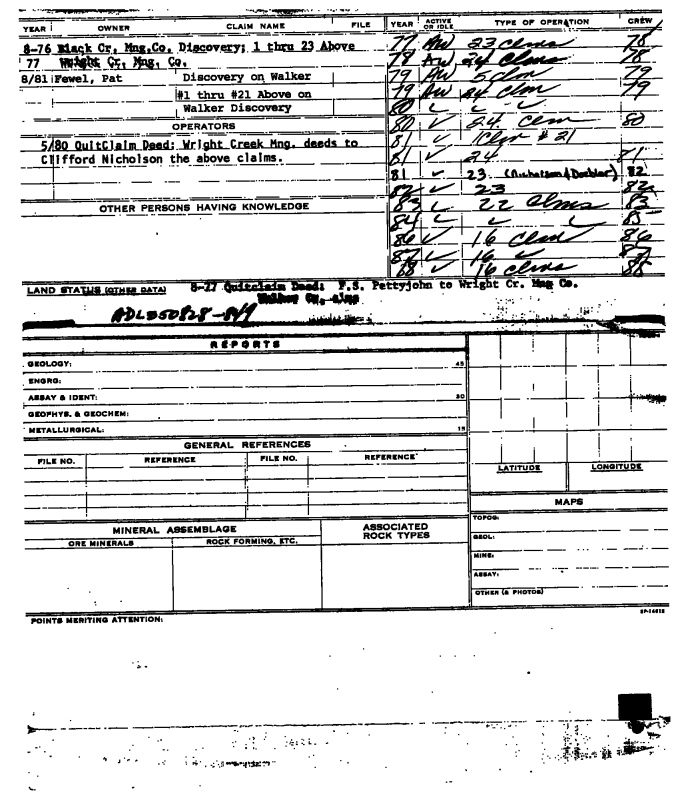 YEAR OWNER CLAIM NAME FILE YEAR ACTIVE OR IDLE TYPE OF OPERATION CREW
8-76 Black Cr, Mng.Co. Discovery; 1 thru 23 Above 77 AW 23 Clms 78
77 Wright Cr, Mng, Co. 78 AW 24 Clms 78
8/81 Fewel, Pat Discovery on Walker 79 AW 5 Clm 79
#1 thru #21 Above on 79 AW 24 Clm 79
Walker Discovery 80 ✓ ✓ ✓
OPERATORS 80 ✓ 24 Clm 80
5/80 QuitClaim Deed: Wright Creek Mng. deeds to 81 ✓ 1 Clm # 21
Clifford Nicholson the above claims. 81 ✓ 24 81
81 ✓ 23 (Nicholson & Deobler) 82
82 ✓ 23 82
OTHER PERSONS HAVING KNOWLEDGE 83 ✓ 22 Clms 83
84 ✓ ✓ ✓ 85
86 ✓ 16 Clm 86
87 ✓ 16 ✓ 87
88 ✓ 16 Clms 88
LAND STATUS (OTHER DATA) 8-77 Quitclaim Deed: F.S. Pettyjohn to Wright Cr. Mng Co.
Walker Cr.
ADL350828-849
REPORTS
GEOLOGY: 45
ENGRG:
ASSAY & IDENT: 30
GEOPHYS. & GEOCHEM:
METALLURGICAL: 15
GENERAL REFERENCES
FILE NO. REFERENCE FILE NO. REFERENCE
LATITUDE LONGITUDE
MAPS
MINERAL ASSEMBLAGE ASSOCIATED ROCK TYPES
ORE MINERALS ROCK FORMING, ETC.
TOPOG:
GEOL:
MINE:
ASSAY:
OTHER (& PHOTOS)
POINTS MERITING ATTENTION: